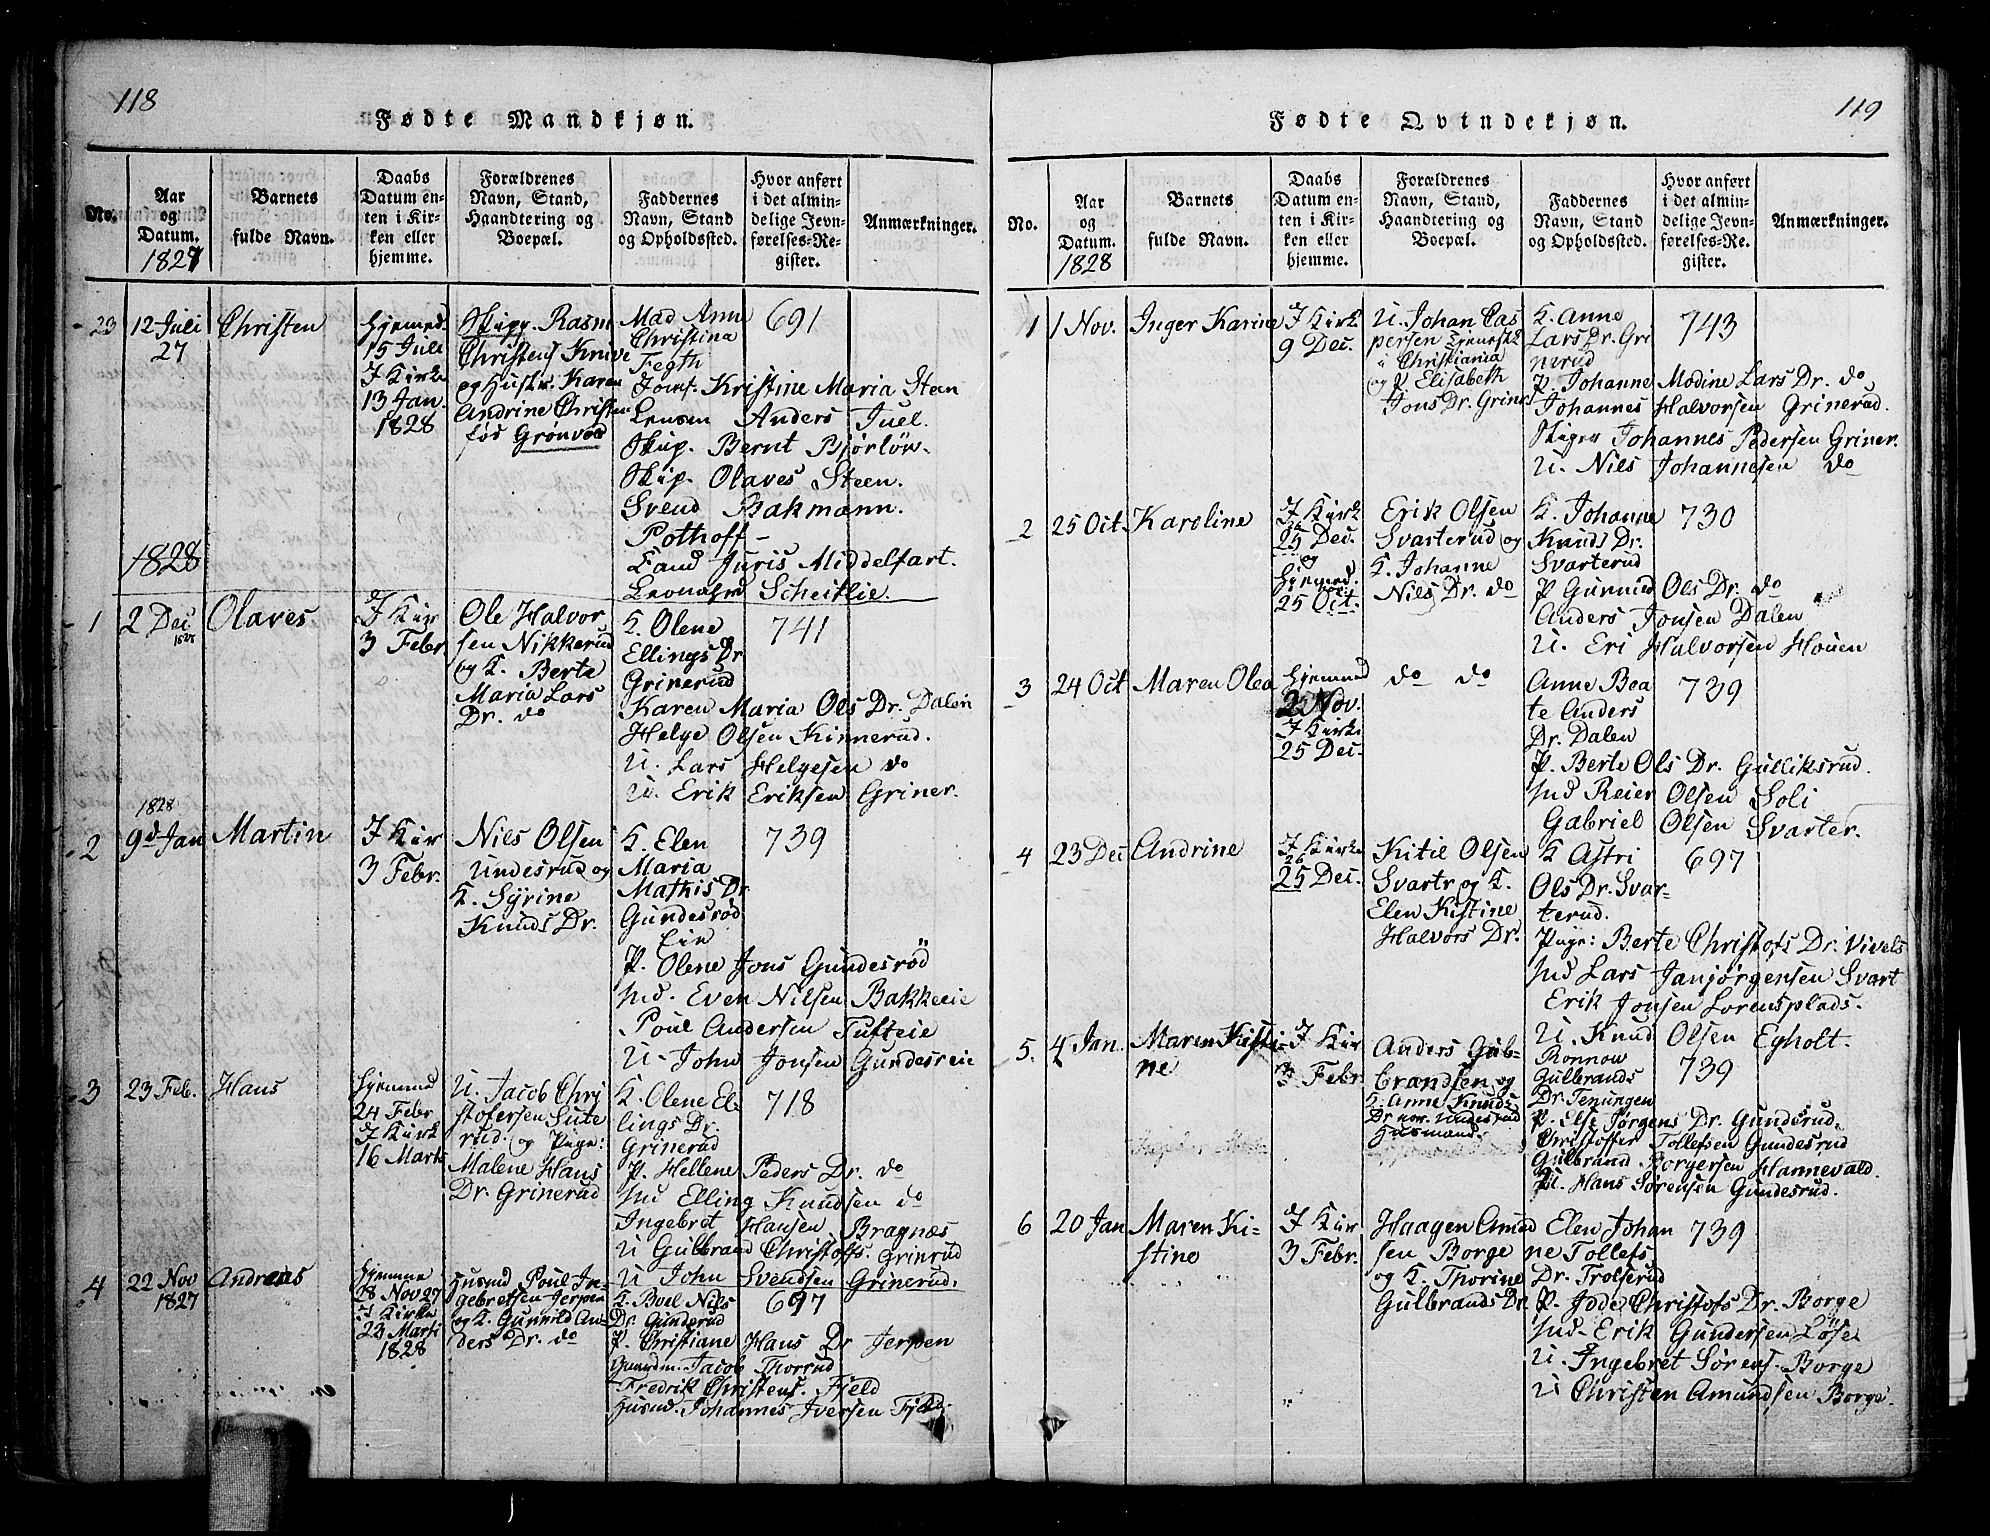 118
Fødte Mandkjøn.
No.
Aar
og
Datum.
1827
Barnets
fulde Navn.
Daabs
Datum en-
ten i Kir-
ken eller
hjemme.
Forældrenes
Navn, Stand,
Haandtering og
Boepæl.
Faddernes
Navn, Stand
og Opholdssted.
Hvor anført
i det almin-
delige Jevn-
førelses-Re-
gister.
Anmærkninger.
23
12 Juli
27
Christen
Hjemed
15 Juli
I Kirke
13 Jan.
1828
Skipp. Rasm
Christens Knive
og Hustr. Karen
Andrine Christen
fød Grønvold
Mad Ann
Christina
Fegth
Jomf. Kristine Maria Steen
Anders Juel.
Skip. Bernt Bjørløv.
Skip. Olaves Steen.
Svend Bakmann.
Pothoff
Cand Juris Middelfart.
Scheitlie.
691
1828
1
2 Dec
1827
Olaves.
I Kir
3 Febr
Ole Halvor
sen Nikkerud
og K. Berte
Maria Lars
Dr. do
K. Olene
Ellings Dr
Grinerud
Karen Maria Ols Dr. Dalen
Helge Olsen Kinnerud.
U. Lars Helgesen do
U. Erik Eriksen Griner.
741
2
1828
9d Jan
Martin
I Kir
3 Febr.
Nils Olsen
Undesrud og
K. Syrine
Knuds Dr.
K. Elen
Maria
Mathis Dr
Gundesrød
Eie
P. Olene Jons Gundesrød
Hud. Even Nilsen Bakkeeie
Poul Andersen Tufteie
U. John Jonsen Gundesreie
739
3
23 Feb.
Hans
Hjemmed
24 Febr
I Kirk
16 Marts
U. Jacob Chri
stofersen Sute
rud. og Pige:
Malene Hans
Dr. Grinerud
K. Olene El-
lings Dr.
Grinerud
P. Hellene Peders Dr. do
Hud Elling Knudsen do
Ingebret Hansen Bragnæs
U Gulbrand Christofs. Grinrud
U John Svendsen Grinerud.
718
4
22 Nov
1827
Andreas
Hjemme
28 Nov 27
I Kirke
23 Marti
1828
Husmd Poul In-
gebretsen Jerpen
og K. Gunnild An-
ders Dr. do
K. Boel Nils
Dr. Gunderud
P. Christiane Hans Dr Jerpen
Gaardm. Jacob Thorrud
Fredrik Christens. Fjeld
Husmd. Johannes Iversen Fjeld.
697
119
Fødte Qvindekjøn.
No.
Aar
og
Datum.
1828
Barnets
fulde Navn.
Daabs
Datum en-
ten i Kir-
ken eller
hjemme.
Forældrenes
Navn, Stand,
Haandtering og
Boepæl.
Faddernes
Navn, Stand
og Opholdssted.
Hvor anført
i det almin-
delige Jevn-
førelses-Re-
gister.
Anmærkninger.
1
1 Nov.
Inger Karine
I Kirk
9 Dec.
U. Johan Cas
persen tjenestk
i Christiania
og P Elisabeth
Jons Dr. Griner
K. Anne
Lars Dr. Gri
nerud
P. Johanne Modine Lars Dr. do
Johannes Halvorsen Grinerud.
Johannes Pedersen Griner.
U. Nils Johannesen do
743
2
25 Oct.
Karoline
I Kirk
26
25 Dec.
og
Hjemed.
25 Oct.
Erik Olsen
Svarterud og
K. Johanne
Nils Dr. do
K. Johanne
Knuds Dr.
Svarterud
P Gunnild Ols Dr. do
Anders Jonsen Dalen
U. Eri Halvorsen Houen
730
3
24 Oct
Maren Olea
Hjemmed
2 Nov.
I Kirke
25 Dec.
do do
Anne Bea
te Anders
Dr. Dalen
P. Berte Ols Dr. Gulliksrud.
Hud Reier Olsen Soli
Gabriel Olsen Svarter.
739
4
23 Dec
Andrine
I Kirke
26
25 Dec.
Kitil Olsen
Svartr og K.
Elen Kistine
Halvors Dr.
K Astri
Ols Dr. Svar-
terud.
Pige: Berte Christofs Dr. Vivels
Hud Lars Janjørgensen Svart
Erik Jonsen Lorensplads.
U. Knud Olsen Egholt.
697
5.
4 Jan.
Maren Kisti-
ne
I Kir
3 Febr
Anders Gul-
brandsen og
K. Anne Knuds
Dr. Undesrud
Husmand.
Ronnow
Gulbrands
Dr. Tenungen
P. Else Jørgens Dr. Gunderud.
Christoffer Tollefsen Gundesrud
Gulbrand Borgersen Hannevald.
U. Hans Sørensen Gundesrud.
739
6
20 Jan
Maren Ki-
stine
I Kir
3 Febr.
Haagen Amud
sen Borge
og K. Thorine
Gulbrands Dr.
Elen Johan
ne Tollefs
Dr. Trolserud
P. Idde Christofs Dr. Borge
Hud- Erik Gundersen Løse
U. Ingebret Sørens. Borge
U Christen Amundsen Borge.
739